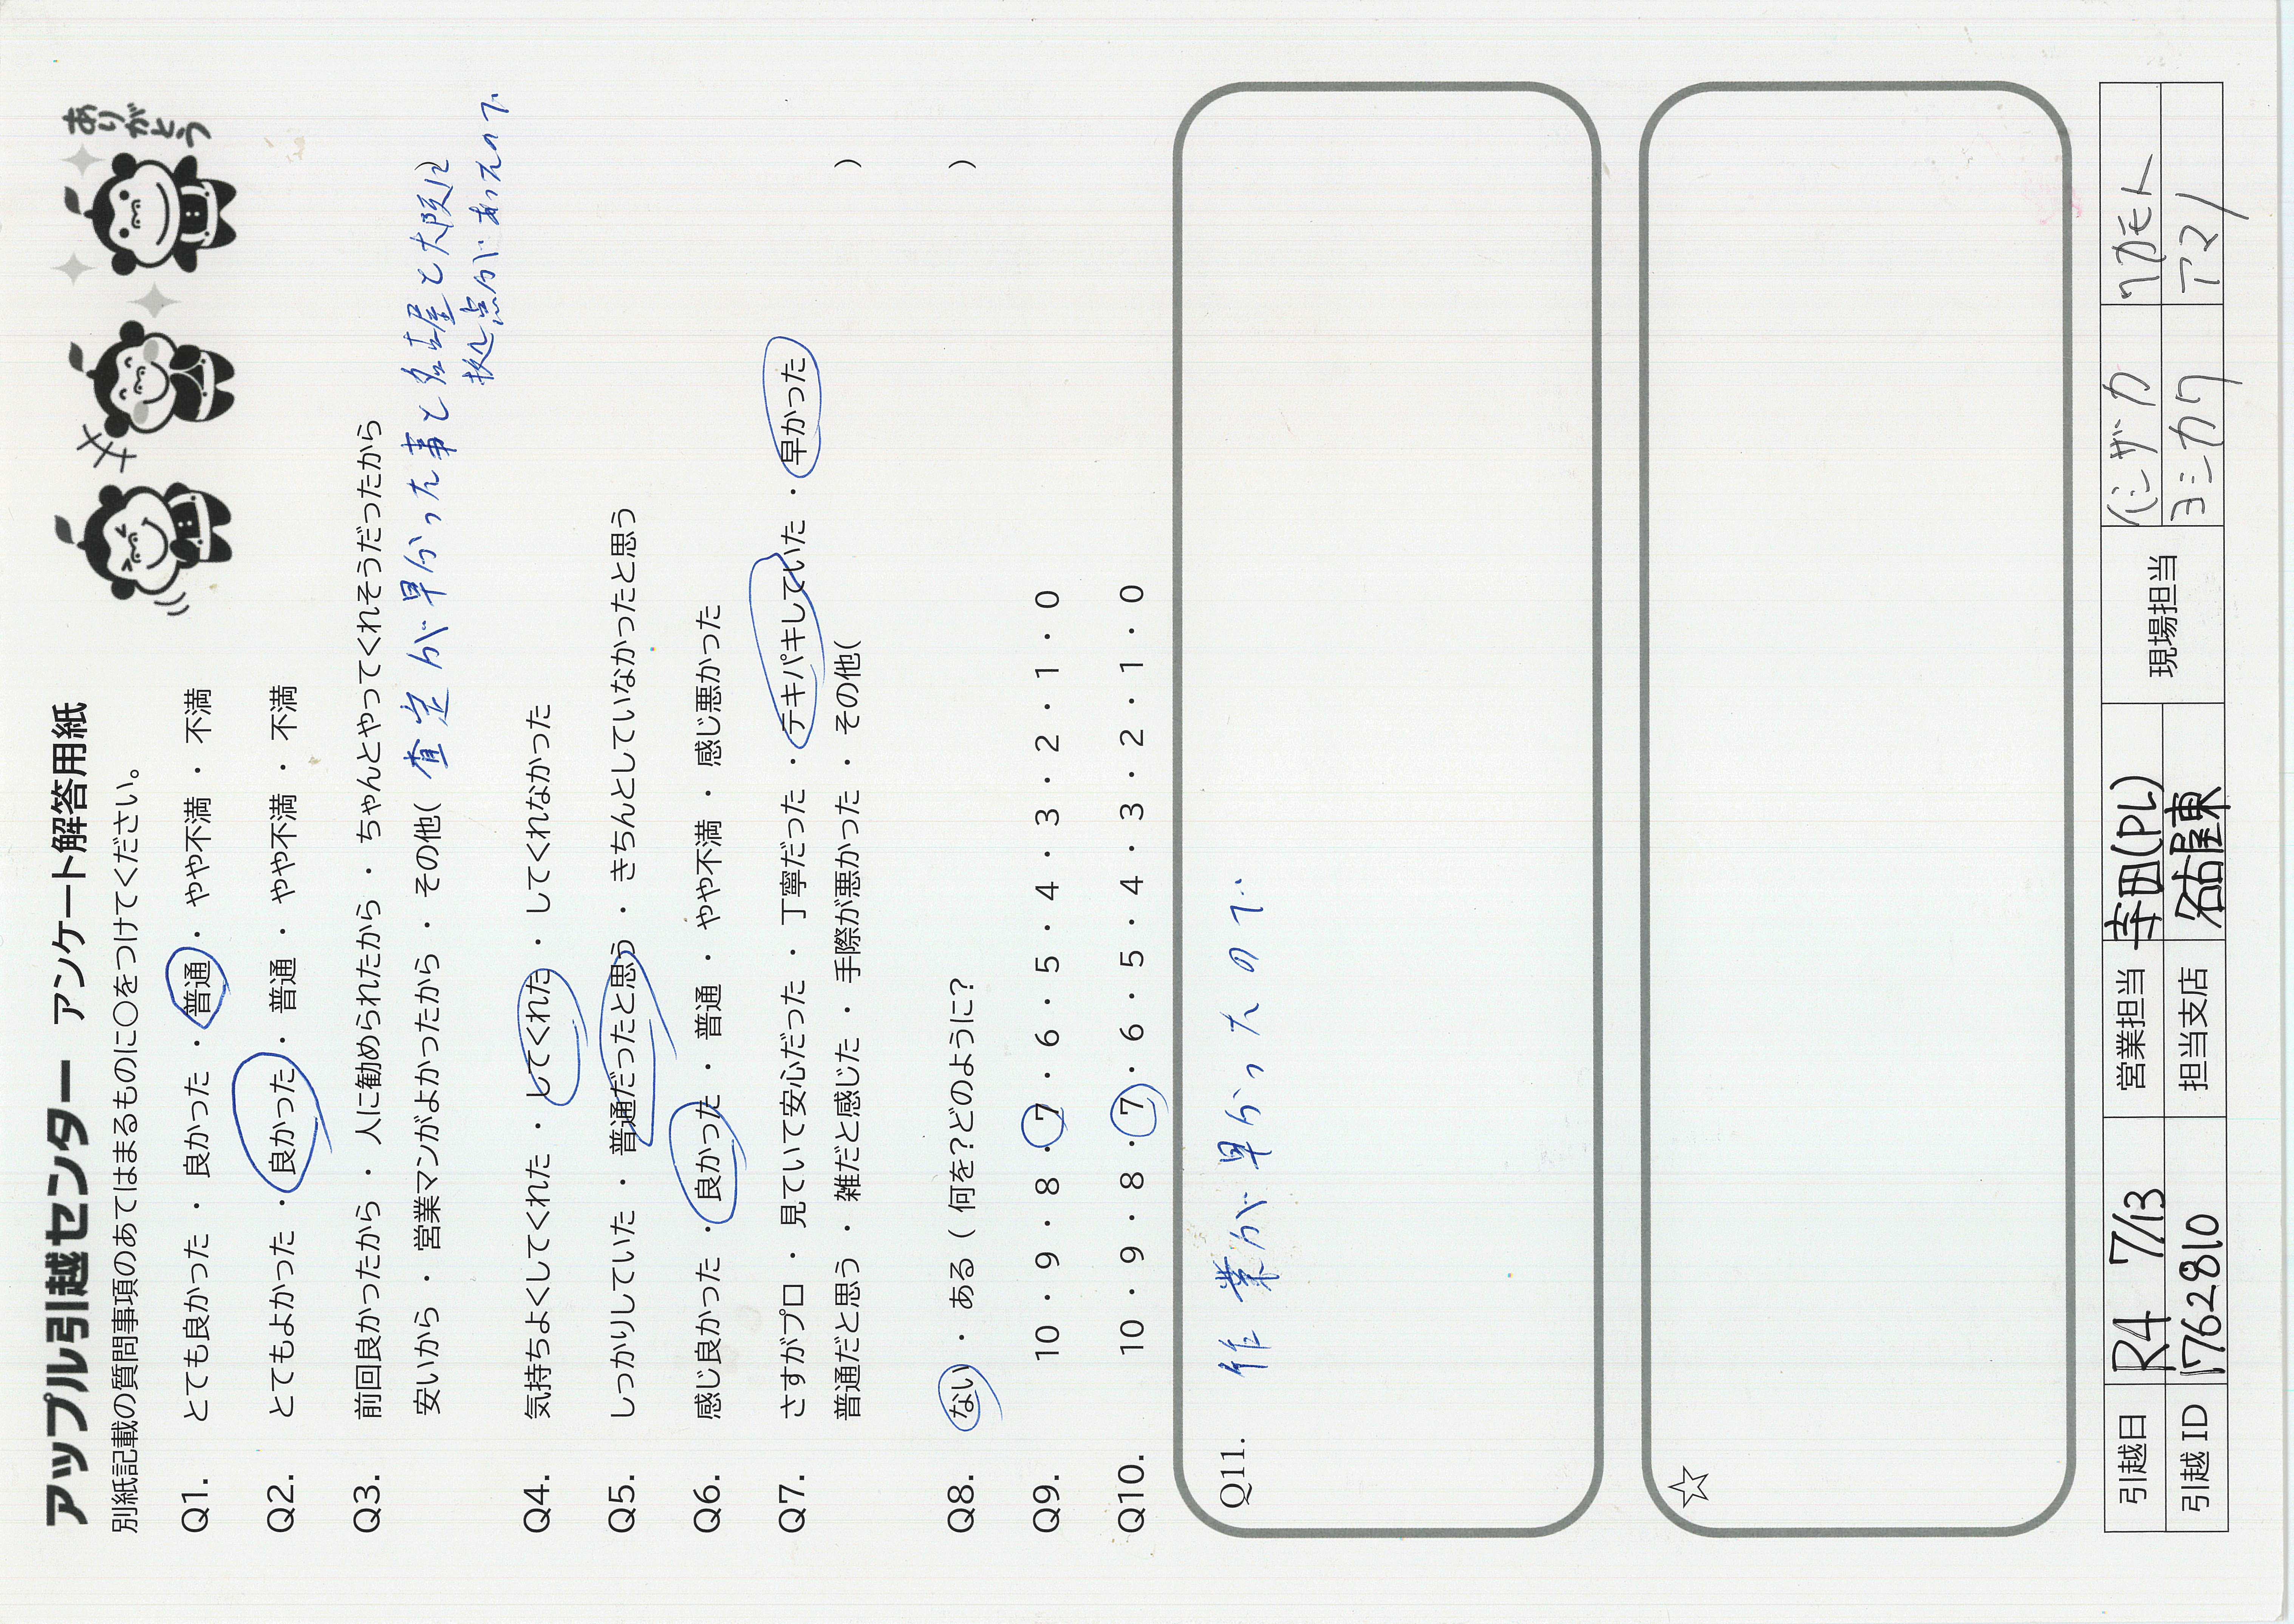 アップル引越センター アンケート解答用紙
ありがとう
別紙記載の質問事項のあてはまるものに〇をつけてください。
Q1. とても良かった ・ 良かった ・ 普通 ・ やや不満 ・ 不満
Q2. とてもよかった ・ 良かった ・ 普通 ・ やや不満 ・ 不満
Q3. 前回良かったから ・ 人に勧められたから ・ ちゃんとやってくれそうだったから
安いから ・ 営業マンがよかったから ・ その他( 査定が早かった事と名古屋と大阪に
拠点があったので
Q4. 気持ちよくしてくれた ・ してくれた ・ してくれなかった
Q5. しっかりしていた ・ 普通だったと思う ・ きちんとしていなかったと思う
Q6. 感じ良かった ・ 良かった ・ 普通 ・ やや不満 ・ 感じ悪かった
Q7. さすがプロ ・ 見ていて安心だった ・ 丁寧だった ・ テキパキしていた ・ 早かった
普通だと思う ・ 雑だと感じた ・ 手際が悪かった ・ その他( )
Q8. ない ・ ある ( 何を?どのように? )
Q9. 10 ・ 9 ・ 8 ・ 7 ・ 6 ・ 5 ・ 4 ・ 3 ・ 2 ・ 1 ・ 0
Q10. 10 ・ 9 ・ 8 ・ 7 ・ 6 ・ 5 ・ 4 ・ 3 ・ 2 ・ 1 ・ 0
Q11. 作業が早かったので
☆
引越日 R4 7/13 営業担当 寺田(PL) 現場担当 イシザカ ワカモト
引越ID 1762810 担当支店 名古屋東 ヨシカワ アマノ